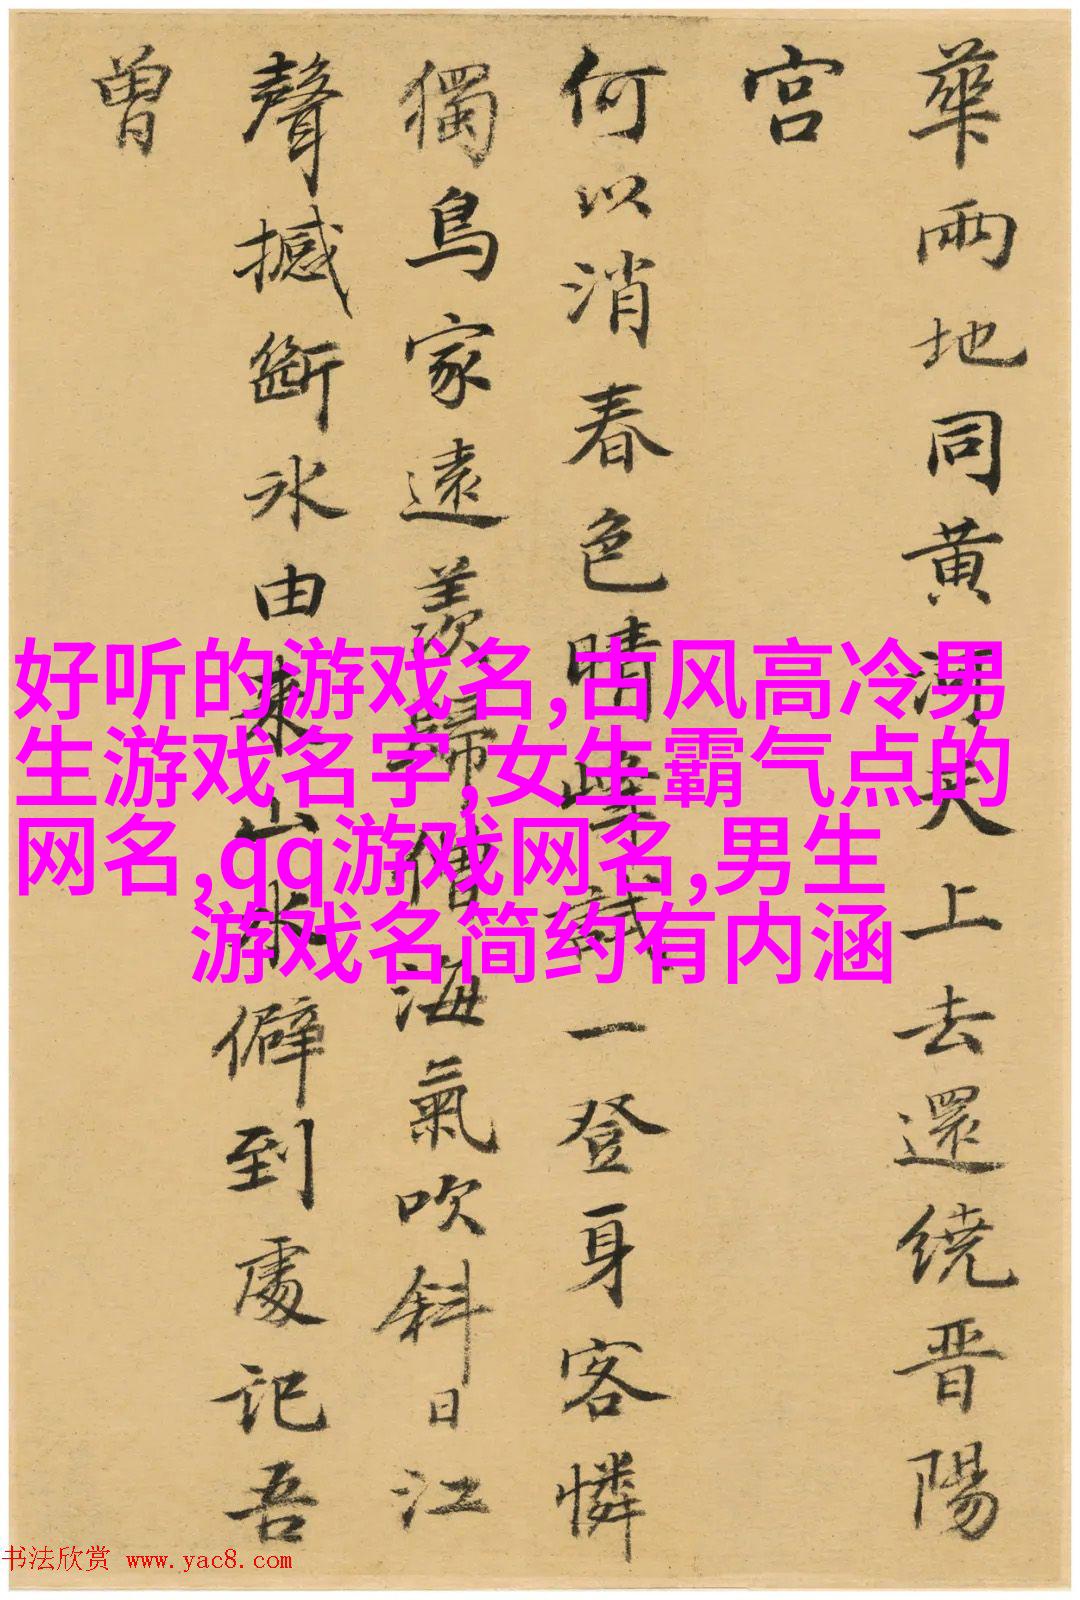 華兩地同黄河天上去還繞晋陽
宫
何以消春色晴峰試一登身客憐
獨鳥家遠羨歸僧海氣吹斜日江
聲撼斷冰由来山水僻到處記吾
曾
好听的游戏名,古风高冷男
生游戏名字,女生霸气点的
网名,qq游戏网名,男生
游戏名简约有内涵
书法欣赏 www.yac8.com